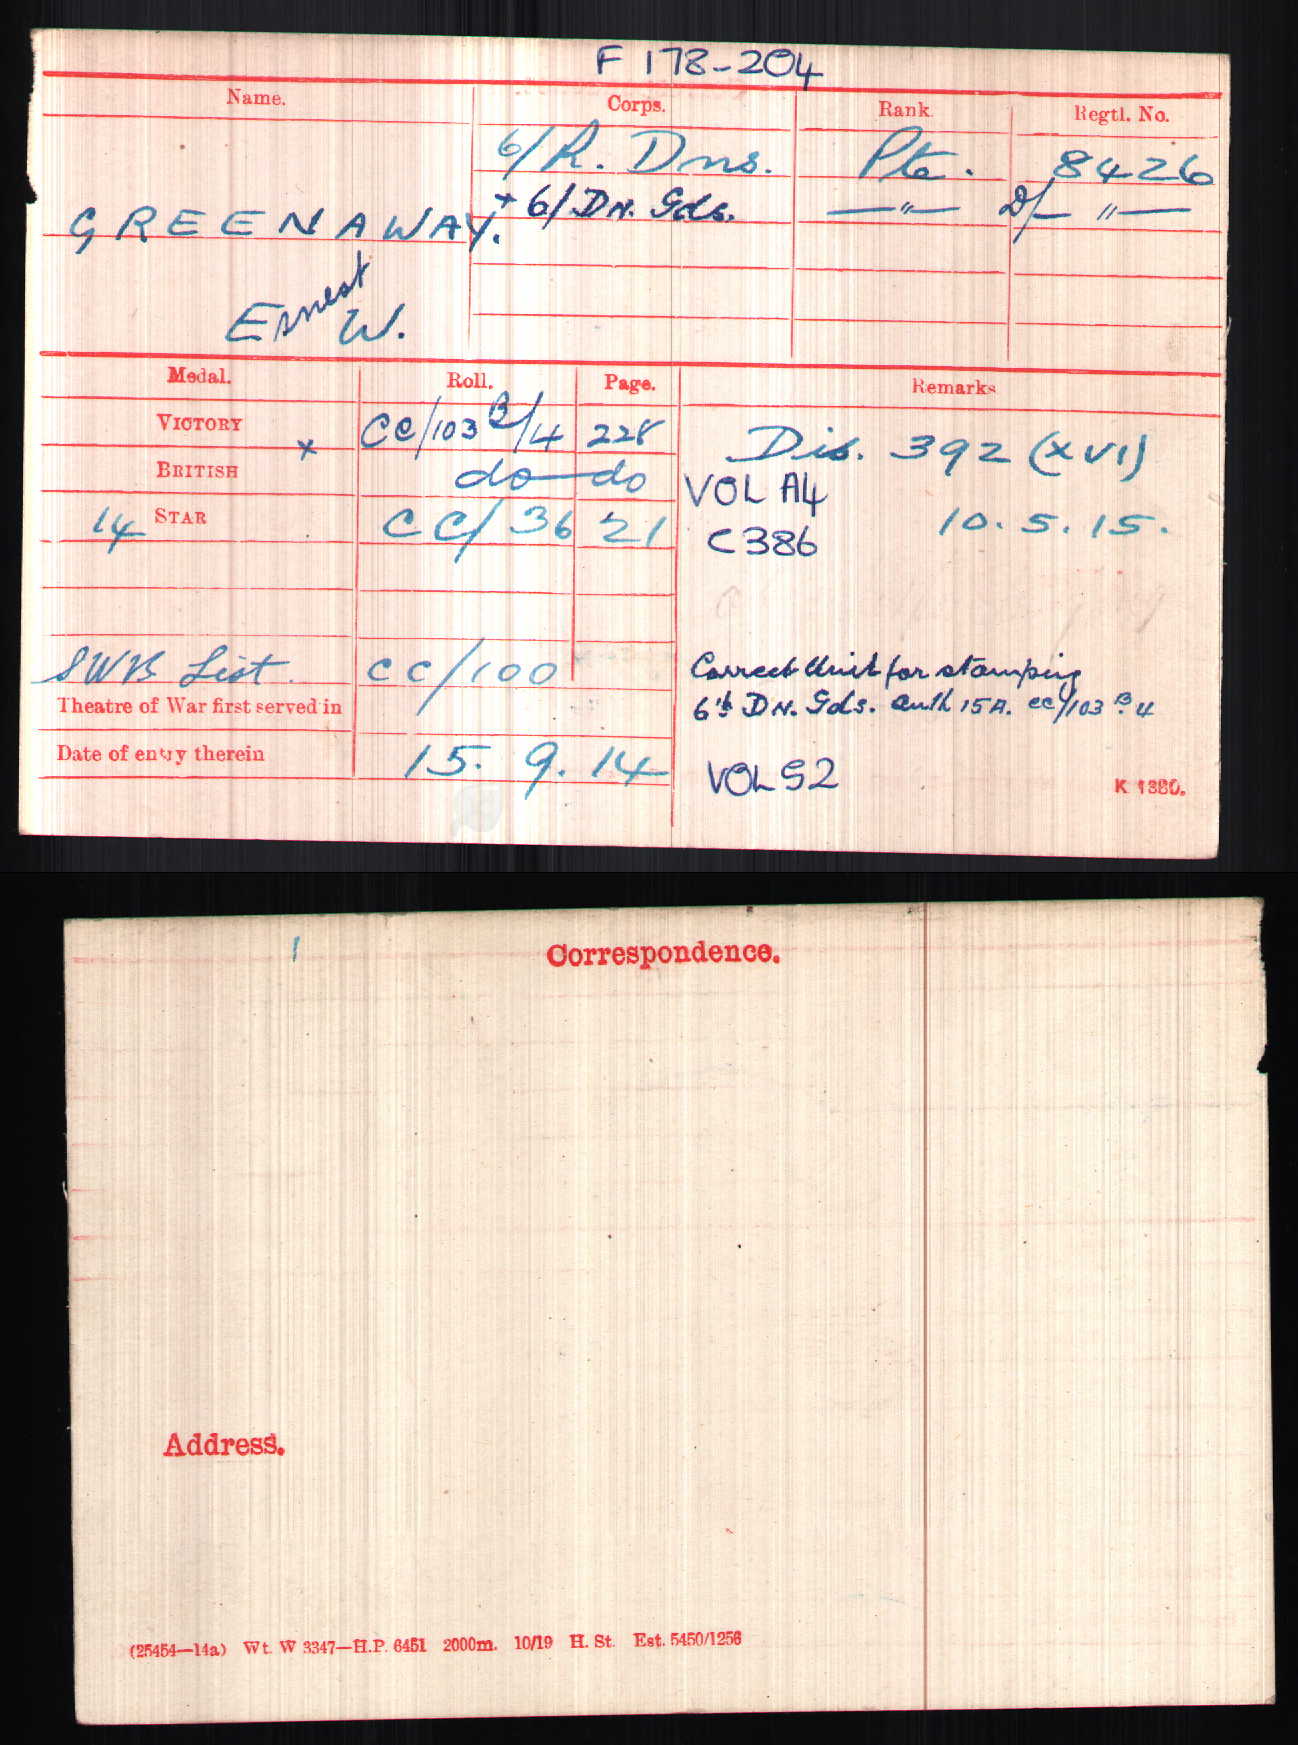 F 178-204
Name. Corps. Rank. Regtl. No.
6/R. Dns. Pte. 8426
GREENAWAY. + 6/Dn. Gds. —"— D/— "—
Ernest W.
Medal. Roll. Page. Remarks
VICTORY CC/103 B/4 228 Dis. 392 (XVI)
x
BRITISH do do VOL A4
14 STAR CC/36 21 C386 10.5.15.
SWB List. CC/100 Correct Unit for stamping
Theatre of War first served in 6th Dn. Gds. auth 15A. CC/103 B.4
Date of entry therein 15.9.14 VOL S2 K 1380.
Correspondence.
Address.
(25454—14a) Wt. W 3347—H.P. 6451 2000m. 10/19 H. St. Est. 5450/1256